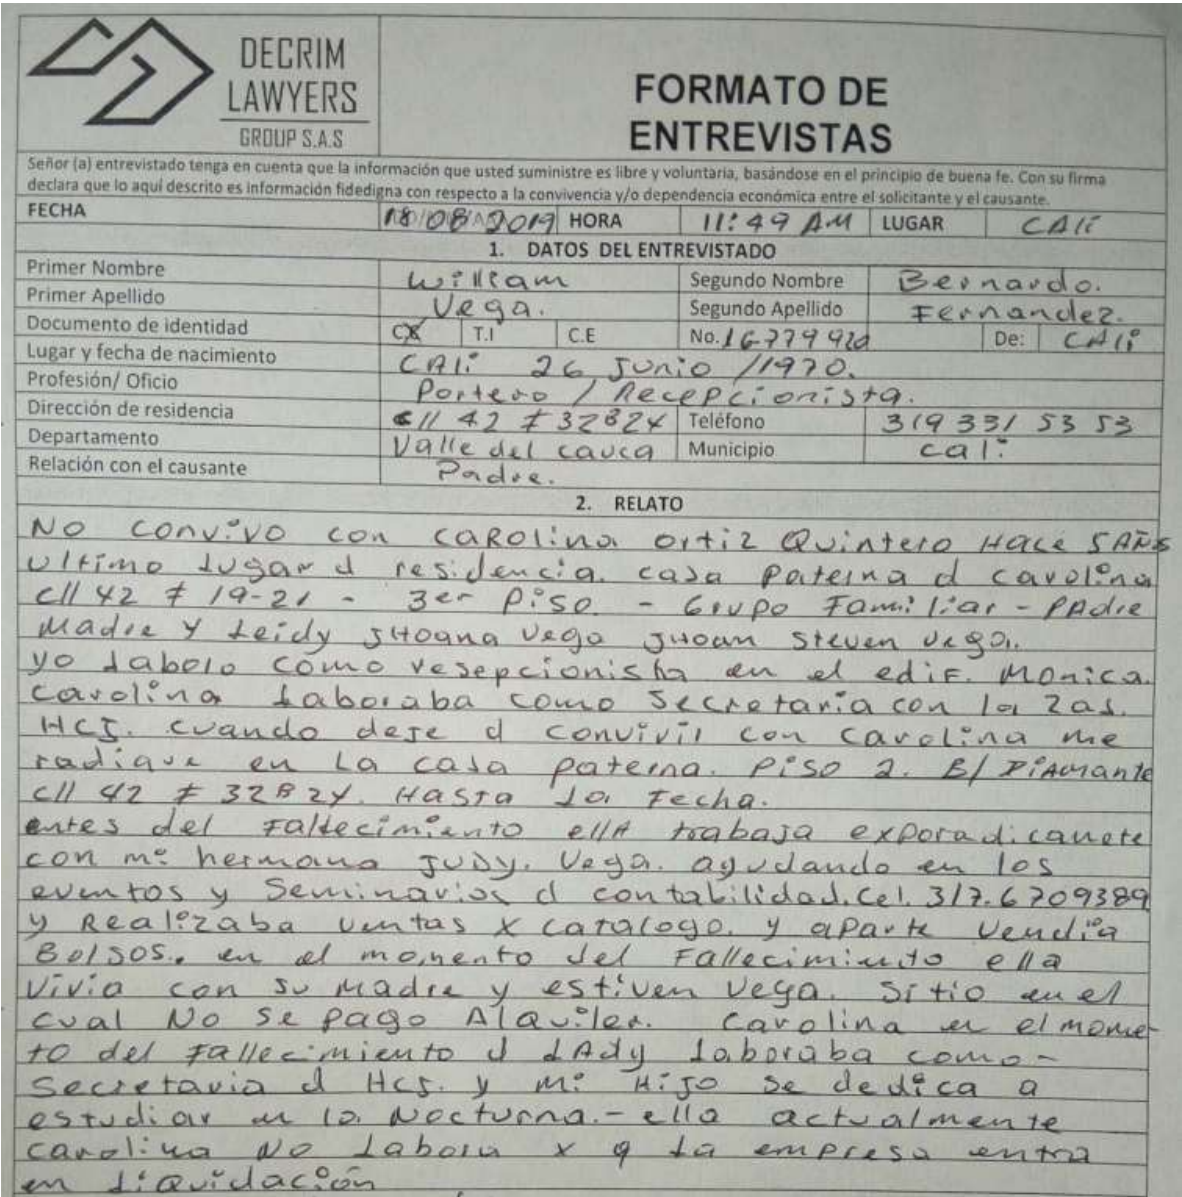 DECRIM
LAWYERS
GROUP S.A.S
FORMATO DE
ENTREVISTAS
Señor (a) entrevistado tenga en cuenta que la información que usted suministre es libre y voluntaria, basándose en el principio de buena fe. Con su firma
declara que lo aquí descrito es información fidedigna con respecto a la convivencia y/o dependencia económica entre el solicitante y el causante.
FECHA 18/08/2019 HORA 11:49 AM LUGAR CAli
1. DATOS DEL ENTREVISTADO
Primer Nombre William Segundo Nombre Bernardo.
Primer Apellido Vega. Segundo Apellido Fernandez.
Documento de identidad CX T.I C.E No. De: CAli
Lugar y fecha de nacimiento CAli 26 Junio /1970.
Profesión/ Oficio Portero / Recepcionista.
Dirección de residencia cll 42 # 32B24 Teléfono 319 331 53 53
Departamento Valle del cauca Municipio cali
Relación con el causante Padre.
2. RELATO
No convivo con caROlina ortiz Quintero Hace 5 AÑos
Ultimo lugar d residencia. casa paterna d carolina
cll 42 # 19-21 - 3er Piso. - Grupo Familiar - PAdre
Madre y Leidy JHoana Vega JHoan Steven Vega.
yo laboro como resepcionista en el edif. Monica.
carolina Laboraba como Secretaria con la
HCJ. cuando deje d convivir con carolina me
radique en La casa paterna. Piso 2. B/ DiAmante
cll 42 # 32B24. Hasta la Fecha.
antes del Fallecimiento ellA trabaja exporadicamete
con mi hermana JUDY. Vega. ayudando en los
eventos y Seminarios d contabilidad. cel. 317.6709389
y Realizaba ventas x catalogo. y aparte vendia
Bolsos. en el momento del Fallecimiento ella
vivia con su Madre y estiven Vega. Sitio en el
cual No se pago Alquiler. Carolina en el mome-
to del Fallecimiento d LAdy laboraba como-
Secretaria d HCJ. y mi Hijo se dedica a
estudiar en la Nocturna.- ella actualmente
carolina No labora x q La empresa entra
en liquidación